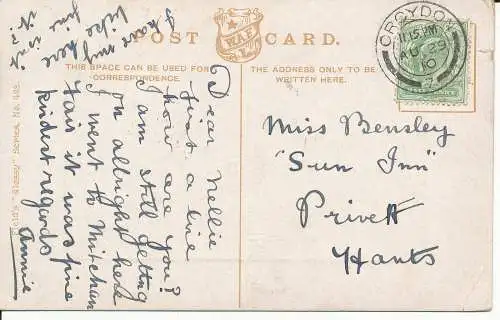 I have my
bike here
fine isn't
it?
POST CARD.
W.A.F.
THIS SPACE CAN BE USED FOR
CORRESPONDENCE.
THE ADDRESS ONLY TO BE
WRITTEN HERE.
CROYDON
11.15 PM
AU 29
10
Dear Nellie
Just a line
how are you?
I am still getting
on allright here
I went to Mitcham
Fair it was fine
kindest regards
Annie
Miss Bensley
"Sun Inn"
Privett
Hants
"Glossy" Series, No.